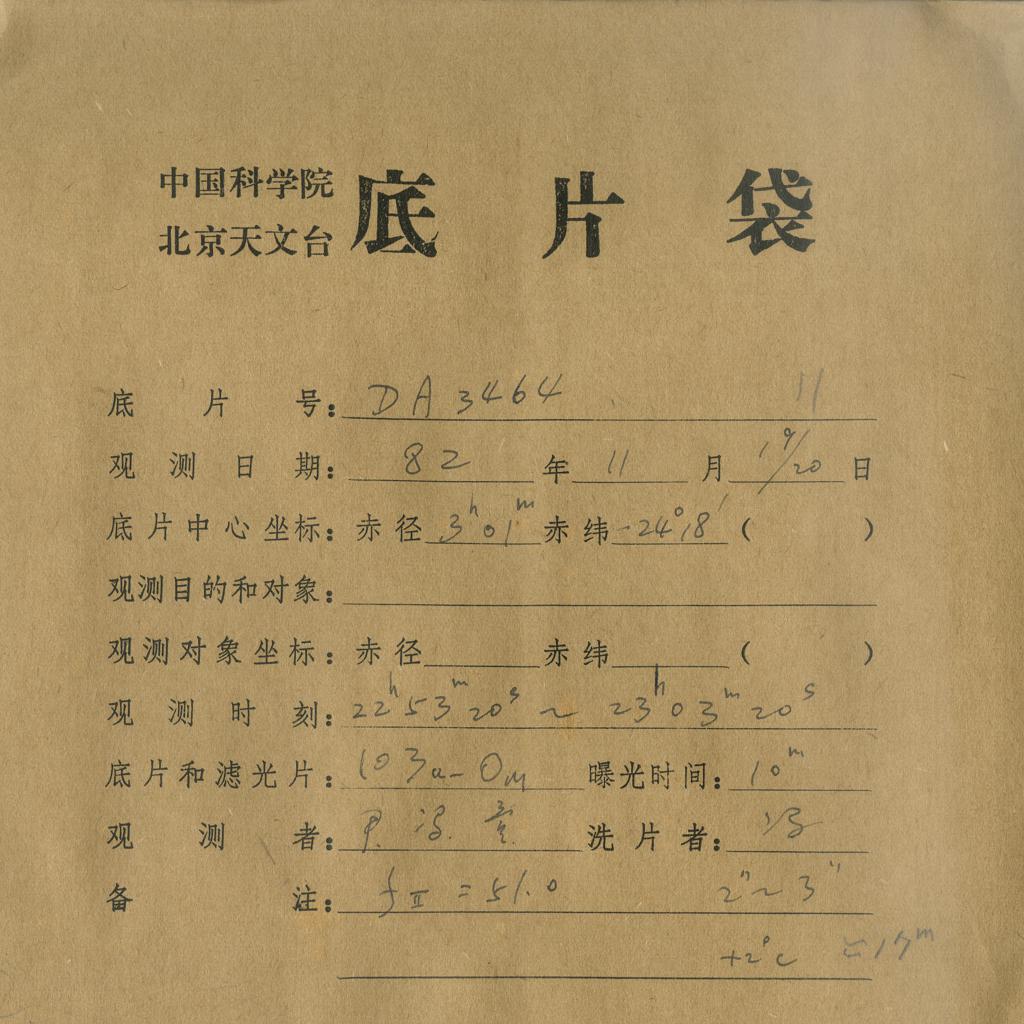 中国科学院
北京天文台 底片袋
底片号: DA3464 11
观测日期: 82年11月19/20日
底片中心坐标: 赤径 3h01m 赤纬 -24°18′ ( )
观测目的和对象:
观测对象坐标: 赤径 赤纬 ( )
观测时刻: 22h53m20s ~ 23h03m20s
底片和滤光片: 103a-O 曝光时间: 10m
观测者: 洗片者: 冯
备注: fII = 51.0 2″~3″
+2°C ≈17m